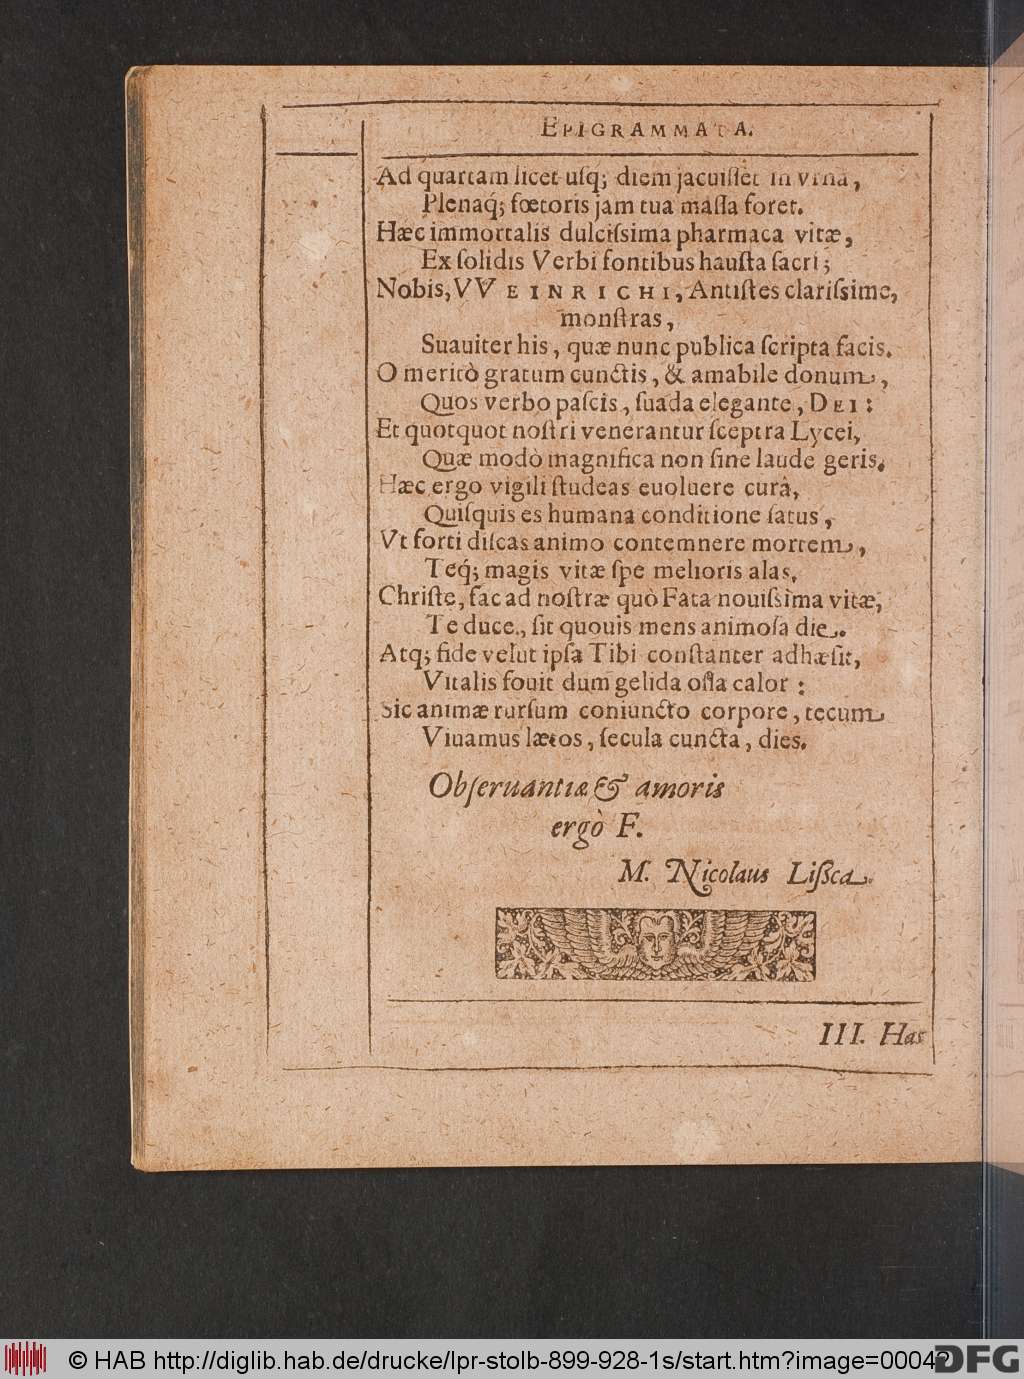 EPIGRAMMATA.
Ad quartam licet uſq; diem jacuiſſet in vrnâ,
Plenaq́; fœtoris jam tua maſſa foret.
Hæc immortalis dulciſsima pharmaca vitæ,
Ex ſolidis Verbi fontibus hauſta ſacri;
Nobis, VVEINRICHI, Antiſtes clariſsime,
monſtras,
Suauiter his, quæ nunc publica ſcripta facis.
O meritò gratum cunctis, & amabile donum,
Quos verbo paſcis, ſuada elegante, DEI:
Et quotquot noſtri venerantur ſceptra Lycei,
Quæ modò magnifica non ſine laude geris.
Hæc ergo vigili ſtudeas euoluere curâ,
Quiſquis es humana conditione ſatus,
Vt forti diſcas animo contemnere mortem,
Teq́; magis vitæ ſpe melioris alas.
Chriſte, fac ad noſtræ quò Fata nouiſsima vitæ,
Te duce, ſit quouis mens animoſa die.
Atq; fide velut ipſa Tibi conſtanter adhæſit,
Vitalis fouit dum gelida oſſa calor:
Sic animæ rurſum coniuncto corpore, tecum
Viuamus lætos, ſecula cuncta, dies.
Obſeruantiæ & amoris
ergò F.
M. Nicolaus Liſsca.
III. Has
© HAB http://diglib.hab.de/drucke/lpr-stolb-899-928-1s/start.htm?image=00042
DFG